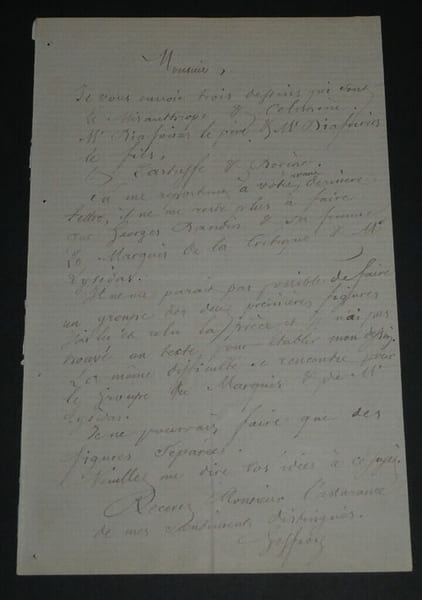 Monsieur,
Je vous envoie trois dessins qui sont
le Misanthrope & Célimène.
Mr Diafoirus le père & Mr Diafoirus
le fils,
& Tartuffe & Dorine.
en me reportant à votre avant dernière
lettre, il ne me reste plus à faire
que Georges Dandin & sa femme
& Marquis de la Critique & Mr
Lysidas.
Il ne me parait pas possible de faire
un groupe des deux premières figures
j'ai lu et relu la pièce et je n'ai pas
trouvé un texte, pour établir mon dessin.
La même difficulté se rencontre pour
le groupe du Marquis & de Mr
Lysidas.
Je ne pourrais faire que des
figures séparées.
Veuillez me dire vos idées à ce sujet.
Recevez Monsieur l'assurance
de mes sentiments distingués.
Geffroy